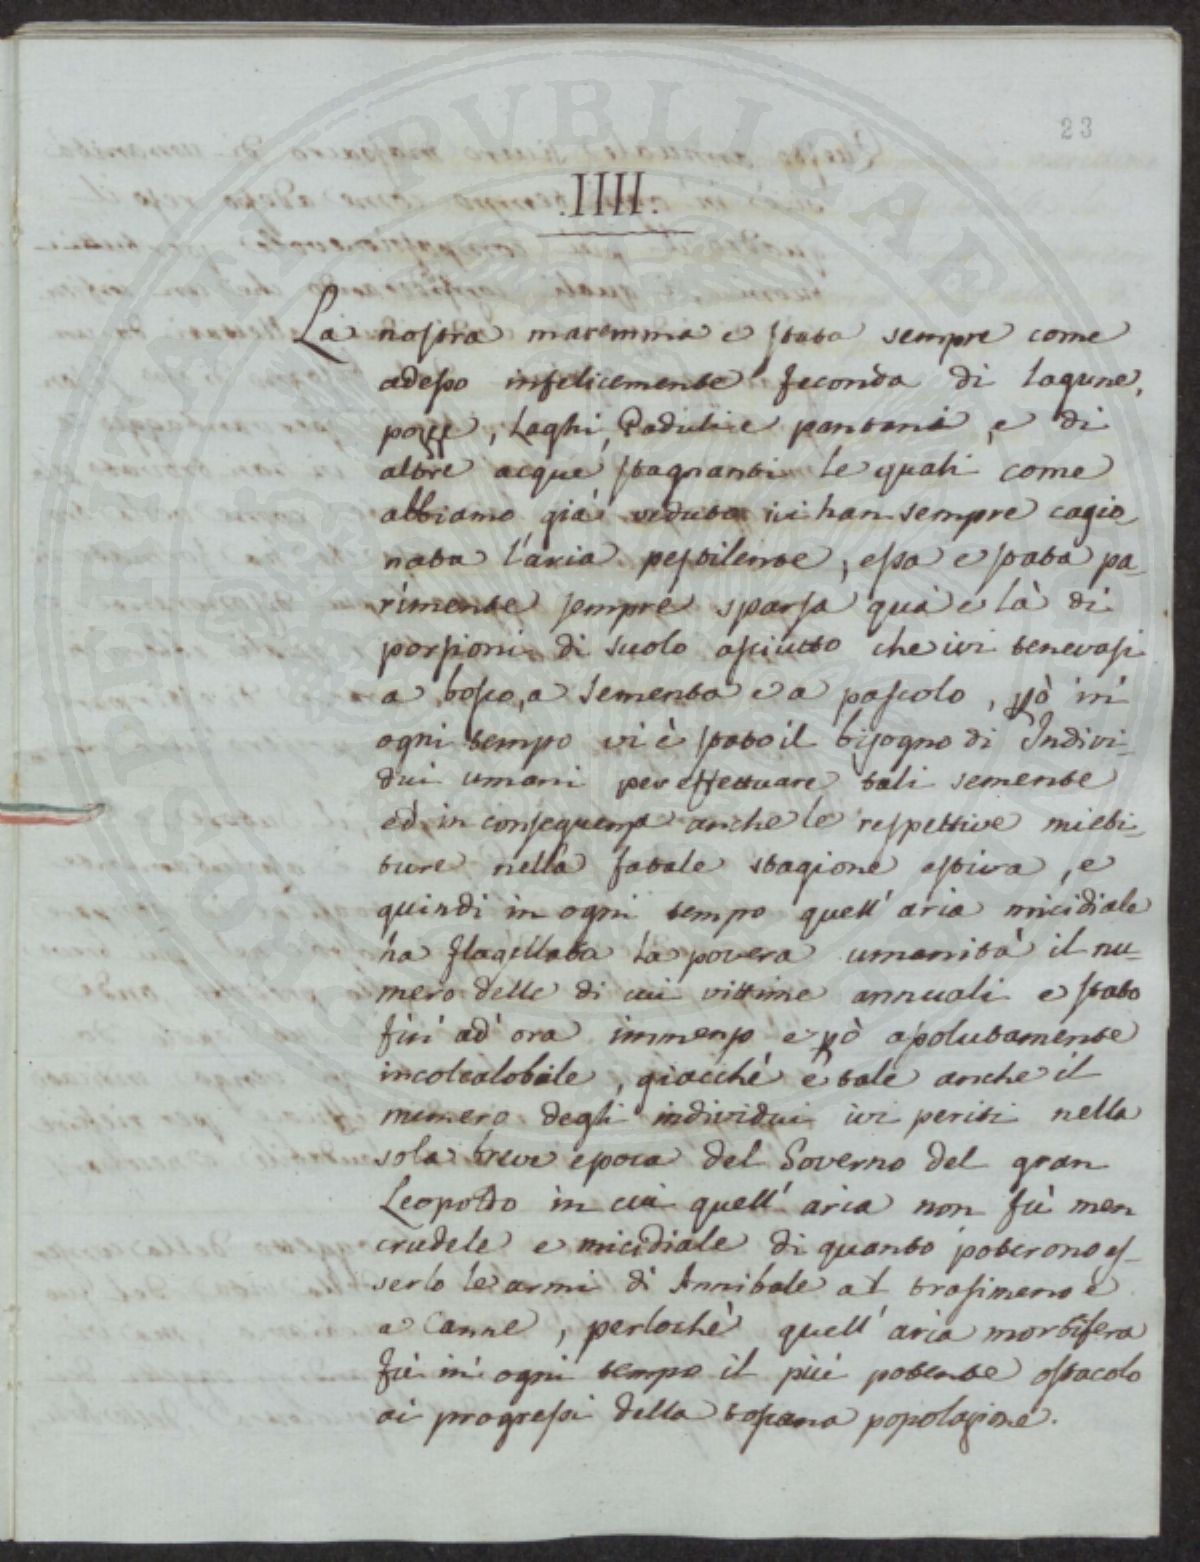 23
.IIII.
La nostra maremma e stata sempre come
adesso infelicemente feconda di lagune,
pozze, Laghi, Paduli e pantani, e di
altre acque stagnanti le quali come
abbiamo già veduto ivi han sempre cagio
nata l'aria pestilente, essa e stata pa-
rimente sempre sparsa quà e là di
porsioni di suolo asciutto che ivi tenevasi
a bosco, a sementa e a pascolo, però in
ogni tempo vi è stato il bisogno di Indivi-
dui umani per effettuare tali semente
ed in conseguenza anche le respettive mieti-
ture nella fatale stagione estiva, e
quindi in ogni tempo quell' aria micidiale
ha flagellata la povera umanità il nu-
mero delle di cui vittime annuali e stato
fin' ad' ora immenso e però assolutamente
incolcalobile, giacchè è tale anche il
numero degli individui ivi periti nella
sola breve epoca del Governo del gran
Leopoldo in cui quell' aria non fù men
crudele e micidiale di quanto poterono es-
serlo le armi di Annibale al trasimeno e
a Canne, perlochè quell' aria mortifera
fù in ogni tempo il più potente ostacolo
ai progressi della toscana popolazione.